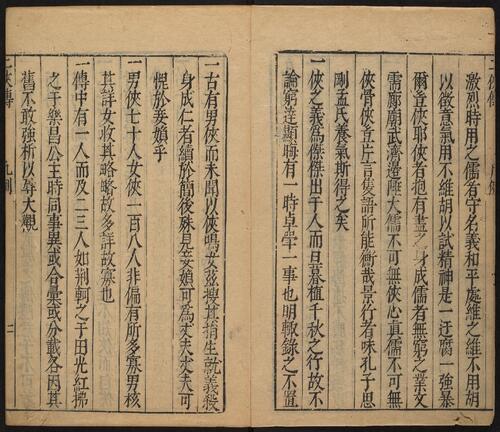 激烈時用之儒者守名義和平處維之維不用胡
以徵意氣用不維胡以試精神是一迂腐一強暴
爾豈俠耶俠者抱有盡之身成儒者無窮之業文
需廊廟武濟邊陲大儒不可無俠心真儒不可無
俠骨俠豈片言隻語所能衡哉景行者味孔子思
剛孟氏養氣斯得之矣
一俠之義為傑傑出千人而旦暮植千秋之行故不
論窮達顯晦有一時卓犖一事也明輒錄之不置
一古有男俠而未聞以俠鳴女茲搜其捐生就義殺
身成仁者續於簡後殊見妾媍可為丈夫丈夫可
愧於妾媍乎
一男俠七十人女俠一百八人非偏有所多寡男核
其詳女收其略略故多詳故寡也
一傳中有一人而及二三人如荊軻之于田光紅拂
之于樂昌公主時同事異或合彙或分載各因其
舊不敢強析以辱大觀
二俠傳
凡例
二